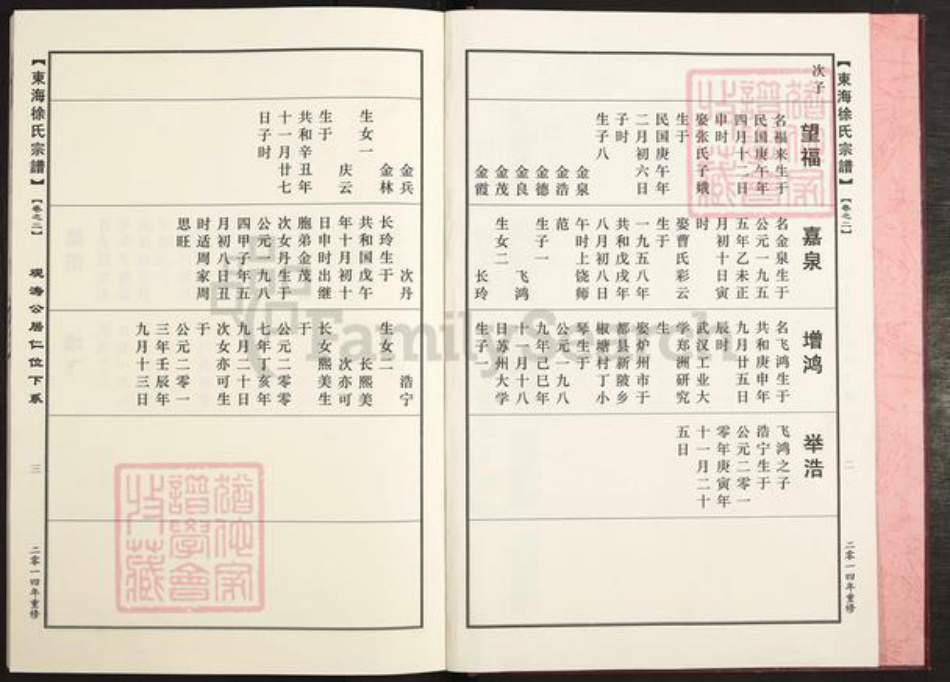 【東海徐氏宗譜】
【卷之二】
二
二零一四年重修
次子
望福
名福来生于
民国庚午年
四月十二日
申时
娶张氏子娥
生于
民国庚午年
二月初六日
子时
生子八
金泉
金浩
金德
金良
金茂
金霞
嘉泉
名金泉生于
公元一九五
五年乙未正
月初十日寅
时
娶曹氏彩云
生于
一九五八年
共和戊戌年
八月初八日
午时上饶师
范
生子一
飞鸿
生女二
长玲
增鸿
名飞鸿生于
共和庚申年
九月廿五日
辰时
武汉工业大
学郑洲研究
生
娶炉州市于
都县新陂乡
椒塘村丁小
琴生于
公元一九八
九年己巳年
十一月十八
日苏州大学
生子一
举浩
飞鸿之子
浩宁生于
公元二零一
零年庚寅年
十一月二十
五日
金兵
金林
庆云
生女一
生于
共和辛丑年
十一月廿七
日子时
次丹
长玲生于
共和国戊午
年十月初十
日申时出继
胞弟金茂于
次女丹生于
公元一九八
四甲子年五
月初八日丑
时适周家周
思旺
浩宁
生女二
长熙美
次亦可
长女熙美生
于
公元二零零
七年丁亥年
九月二十日
次女亦可生
于
公元二零一
三年壬辰年
九月十三日
【東海徐氏宗譜】
【卷之二】
观涛公居仁位下系
三
二零一四年重修
FamilySearch